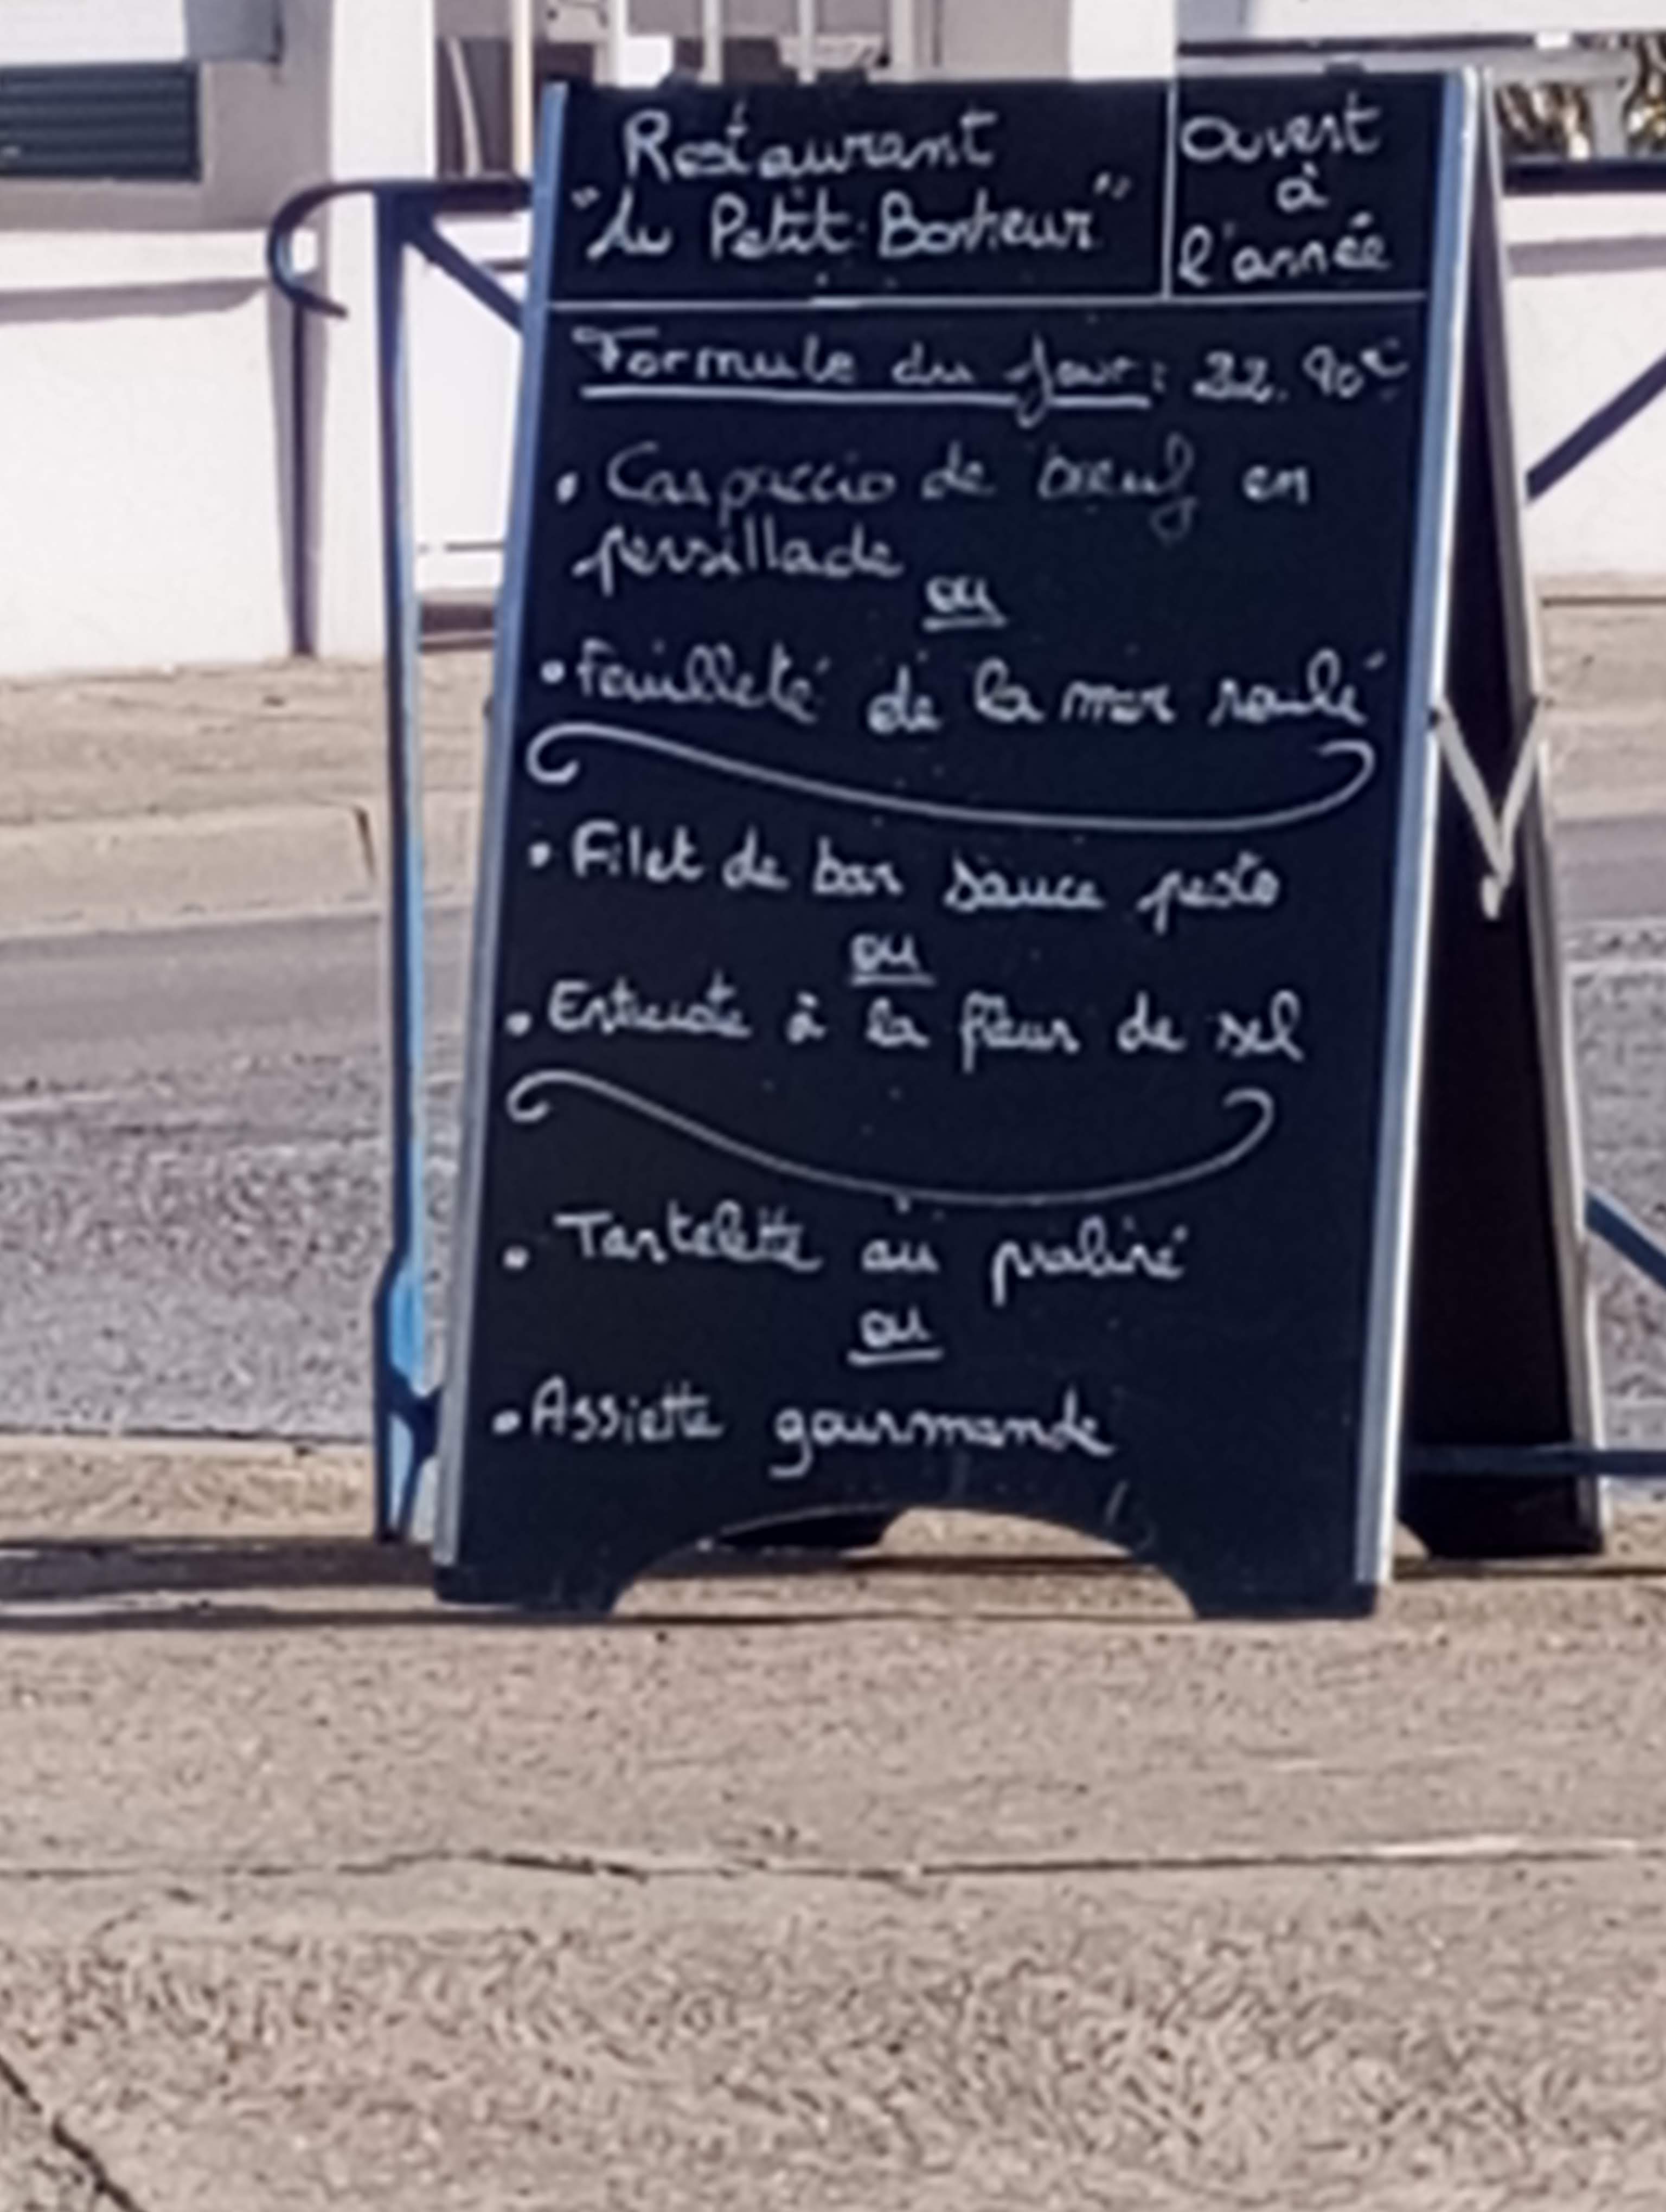 Restaurant
"Au Petit Bonheur"
ouvert
à
l'année
Formule du Jour : 22.90€
• Carpaccio de bœuf en
persillade
ou
• Feuilleté de la mer roulé
• Filet de bar sauce pesto
ou
• Entrecote à la fleur de sel
• Tartelette au praliné
ou
• Assiette gourmande